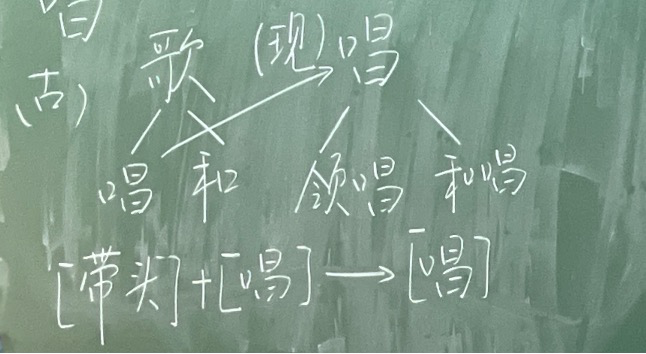 唱
(古) 歌 (现) 唱
唱 和 领唱 和唱
[带头]+[唱]→[唱]